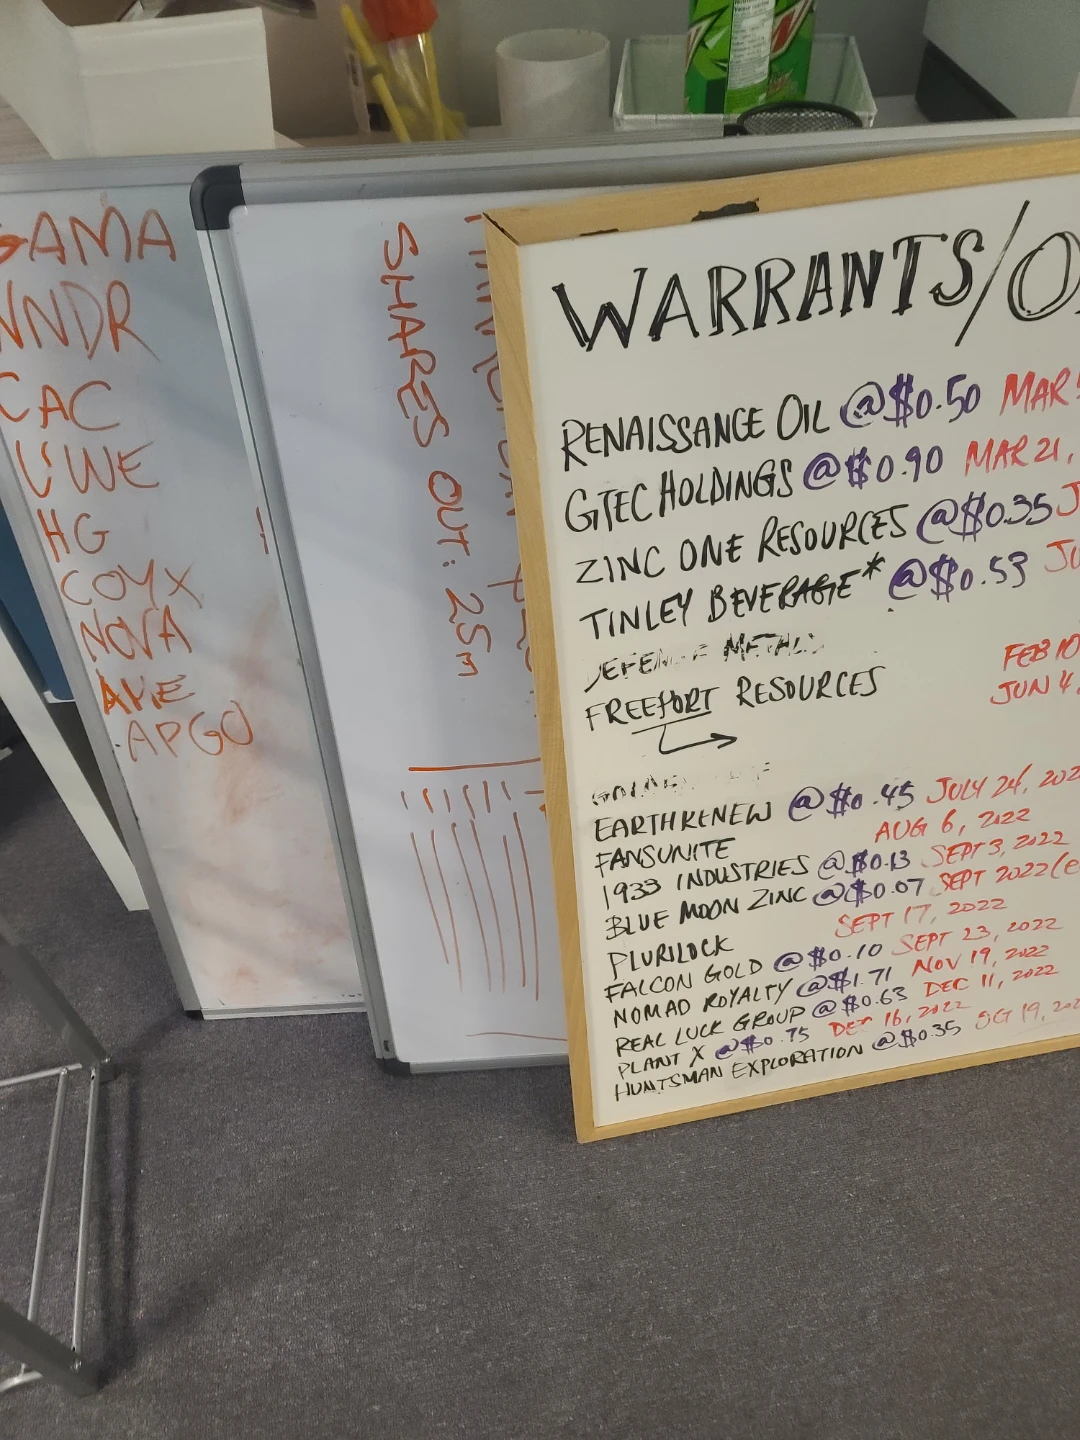 GAMA
NNDR
CAC
UWE
HG
COYX
NOVA
AME
APGO
SHARES OUT: 25M
WARRANTS/O
RENAISSANCE OIL @$0.50 MAR
GTEC HOLDINGS @$0.90 MAR 21,
ZINC ONE RESOURCES @$0.35 J
TINLEY BEVERAGE* @$0.53 JU
DEFENSE METALS FEB 10
FREEPORT RESOURCES JUN 4,
EARTHRENEW @$0.45 JULY 24, 202
FANSUNITE AUG 6, 2022
1933 INDUSTRIES @$0.13 SEPT 3, 2022
BLUE MOON ZINC @$0.07 SEPT 2022 (e
PLURILOCK SEPT 17, 2022
FALCON GOLD @$0.10 SEPT 23, 2022
NOMAD ROYALTY @$1.71 NOV 19, 2022
REAL LUCK GROUP @$0.63 DEC 11, 2022
PLANT X @$0.75 DEC 16, 2022
HUNTSMAN EXPLORATION @$0.35 OCT 19, 202